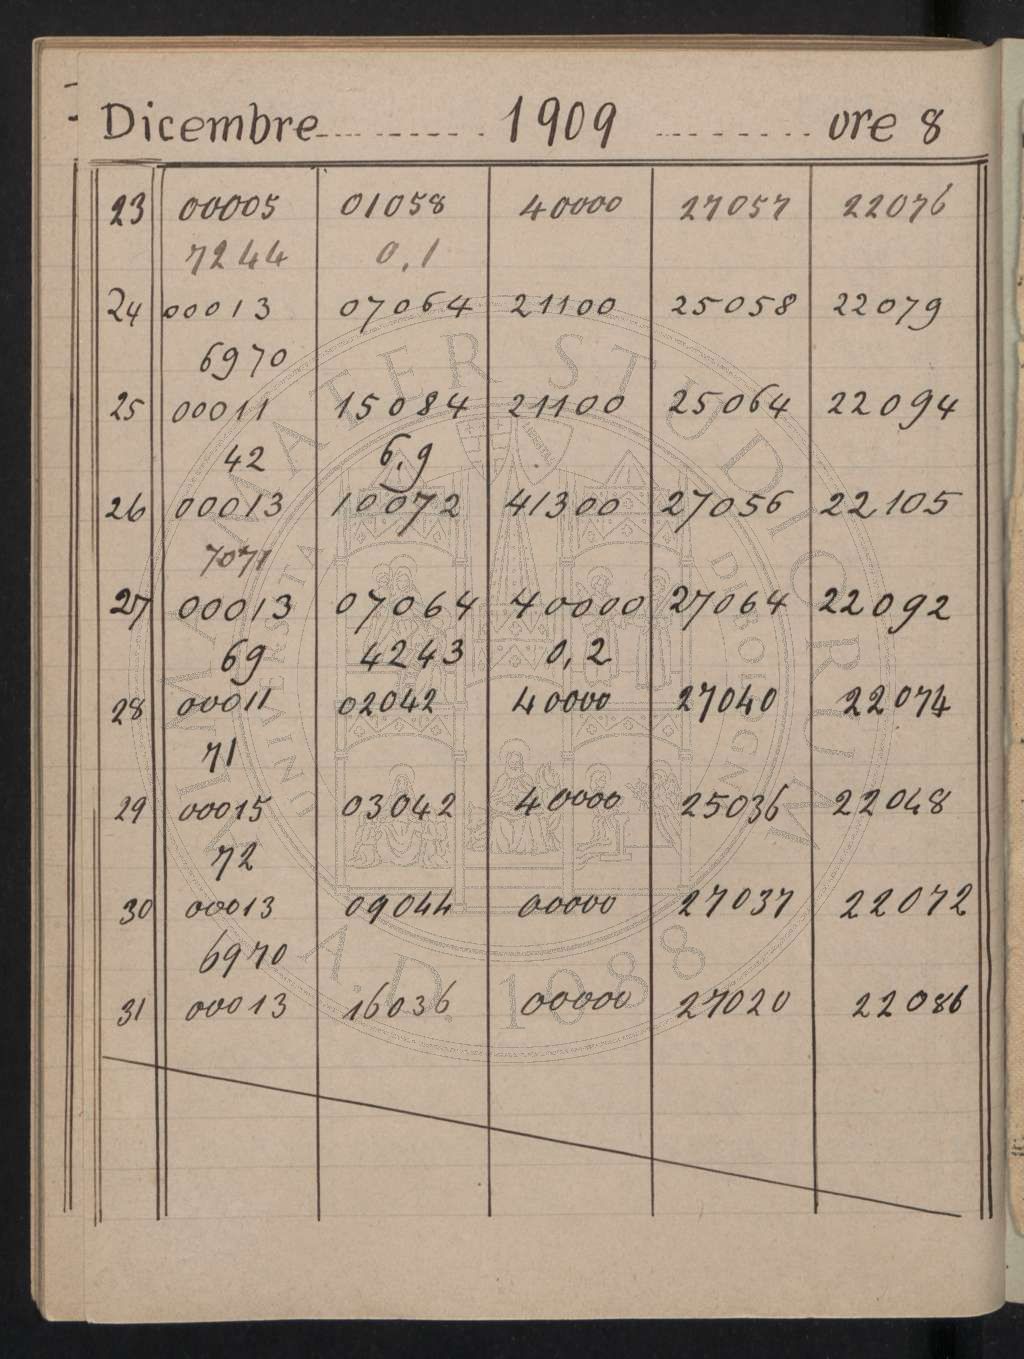 Dicembre 1909 ore 8
23 00005 01058 40000 27057 22076
7244 0,1
24 00013 07064 21100 25058 22079
6970
25 00011 15084 21100 25064 22094
42 6,9
26 00013 10072 41300 27056 22105
7071
27 00013 07064 40000 27064 22092
69 4243 0,2
28 00011 02042 40000 27040 22074
71
29 00015 03042 40000 25036 22048
72
30 00013 09044 00000 27037 22072
6970
31 00013 16036 00000 27020 22086
ALMA MATER STUDIORUM
A.D. 1088